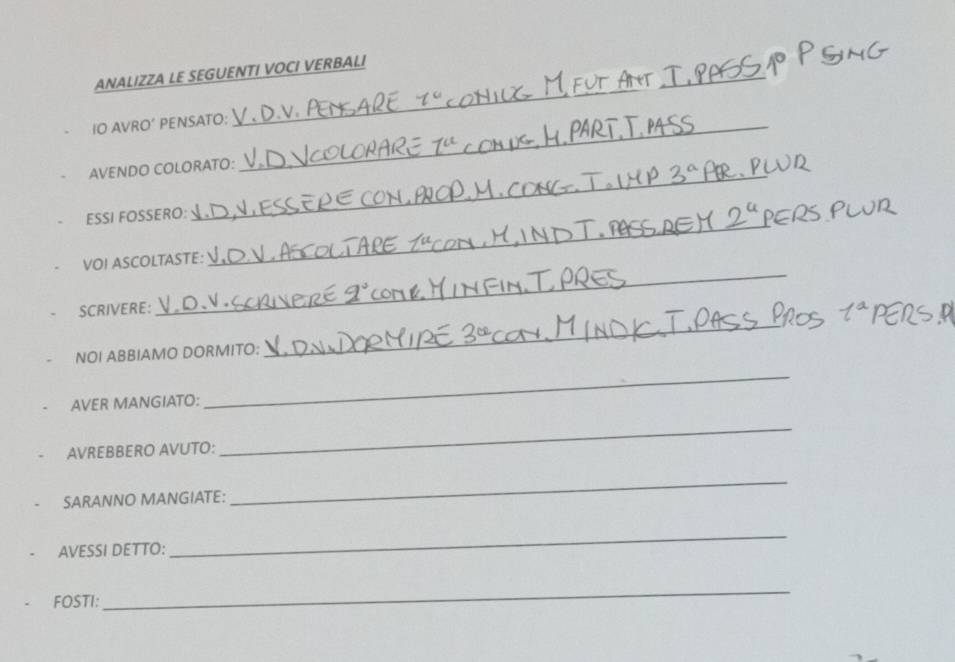 ANALIZZA LE SEGUENTI VOCI VERBALI
- IO AVRO' PENSATO: V.D.V. PENSARE 1ª CONIUG M. FUT ANT T. PASS 1º P SING
- AVENDO COLORATO: V.D.V COLORARE 1ª CONIUG. M. PART. T. PASS
- ESSI FOSSERO: V.D.V. ESSERE CON. PROP. M. CONG. T. IMP 3ª PER. PLUR
- VOI ASCOLTASTE: V.D.V. ASCOLTARE 1ª CON. M. IND T. PASS. REM 2ª PERS. PLUR
- SCRIVERE: V.D.V. SCRIVERE 2ª CONI. M INFIN. T. PRES
- NOI ABBIAMO DORMITO: V.D.V. DORMIRE 3ª CON. M INDIC. T. PASS PROS 1ª PERS. PL
- AVER MANGIATO:
- AVREBBERO AVUTO:
- SARANNO MANGIATE:
- AVESSI DETTO:
- FOSTI: